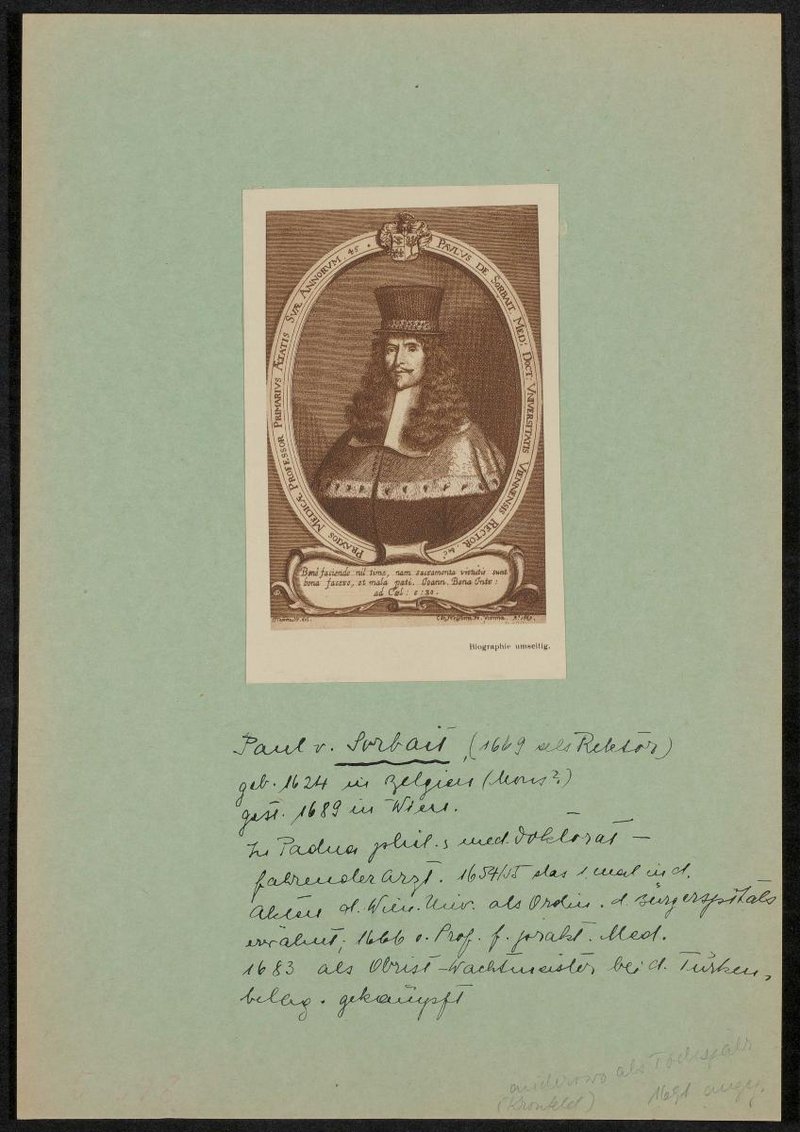 PAVLVS DE SORBAIT MED: DOCT VNIVERSITATIS VIENNENSIS RECTOR. &c.
PRAXIOS MEDICÆ PROFESSOR PRIMARIVS ÆTATIS SVÆ ANNORVM. 45.
Bené faciendo nil time, nam sacramenta virtutis sunt
bona facere, et mala pati. Ioann. Bona
ad Cœl:
Biographie umseitig.
Paul v. Sorbait, (1669 als Rektor)
geb. 1624 in Belgien (Mons?)
gest. 1689 in Wien.
In Padua phil. s med. Doktorat —
fahrender Arzt. 1654/55 das 1 mal in d.
Akten d. Wien. Univ. als Ordin. d. Bürgerspitals
erwähnt; 1666 o. Prof. f. prakt. Med.
1683 als Obrist-Wachtmeister bei d. Türken-
belag. gekämpft
anderswo als Todesjahr
(Kronfeld) 1691 angeg.